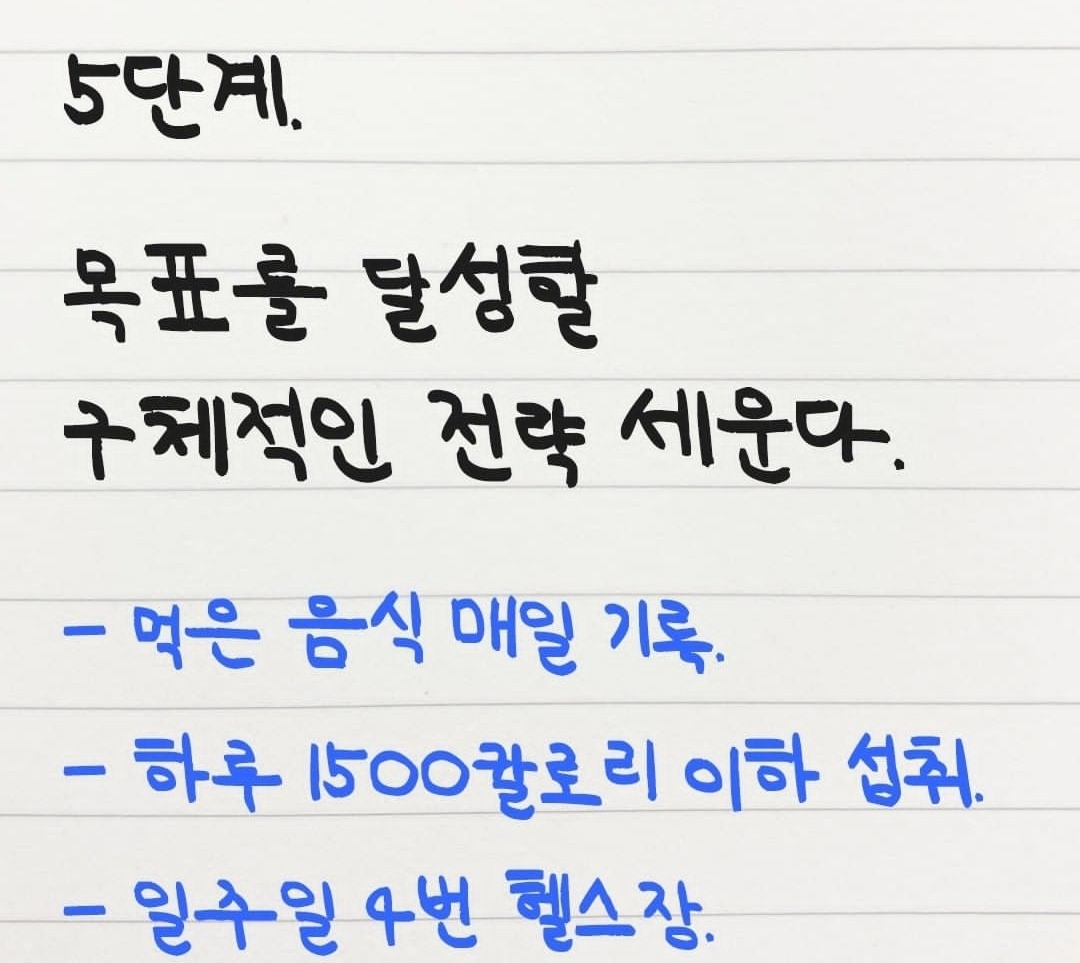 5단계.
목표를 달성할
구체적인 전략 세운다.
- 먹은 음식 매일 기록.
- 하루 1500칼로리 이하 섭취.
- 일주일 4번 헬스장.